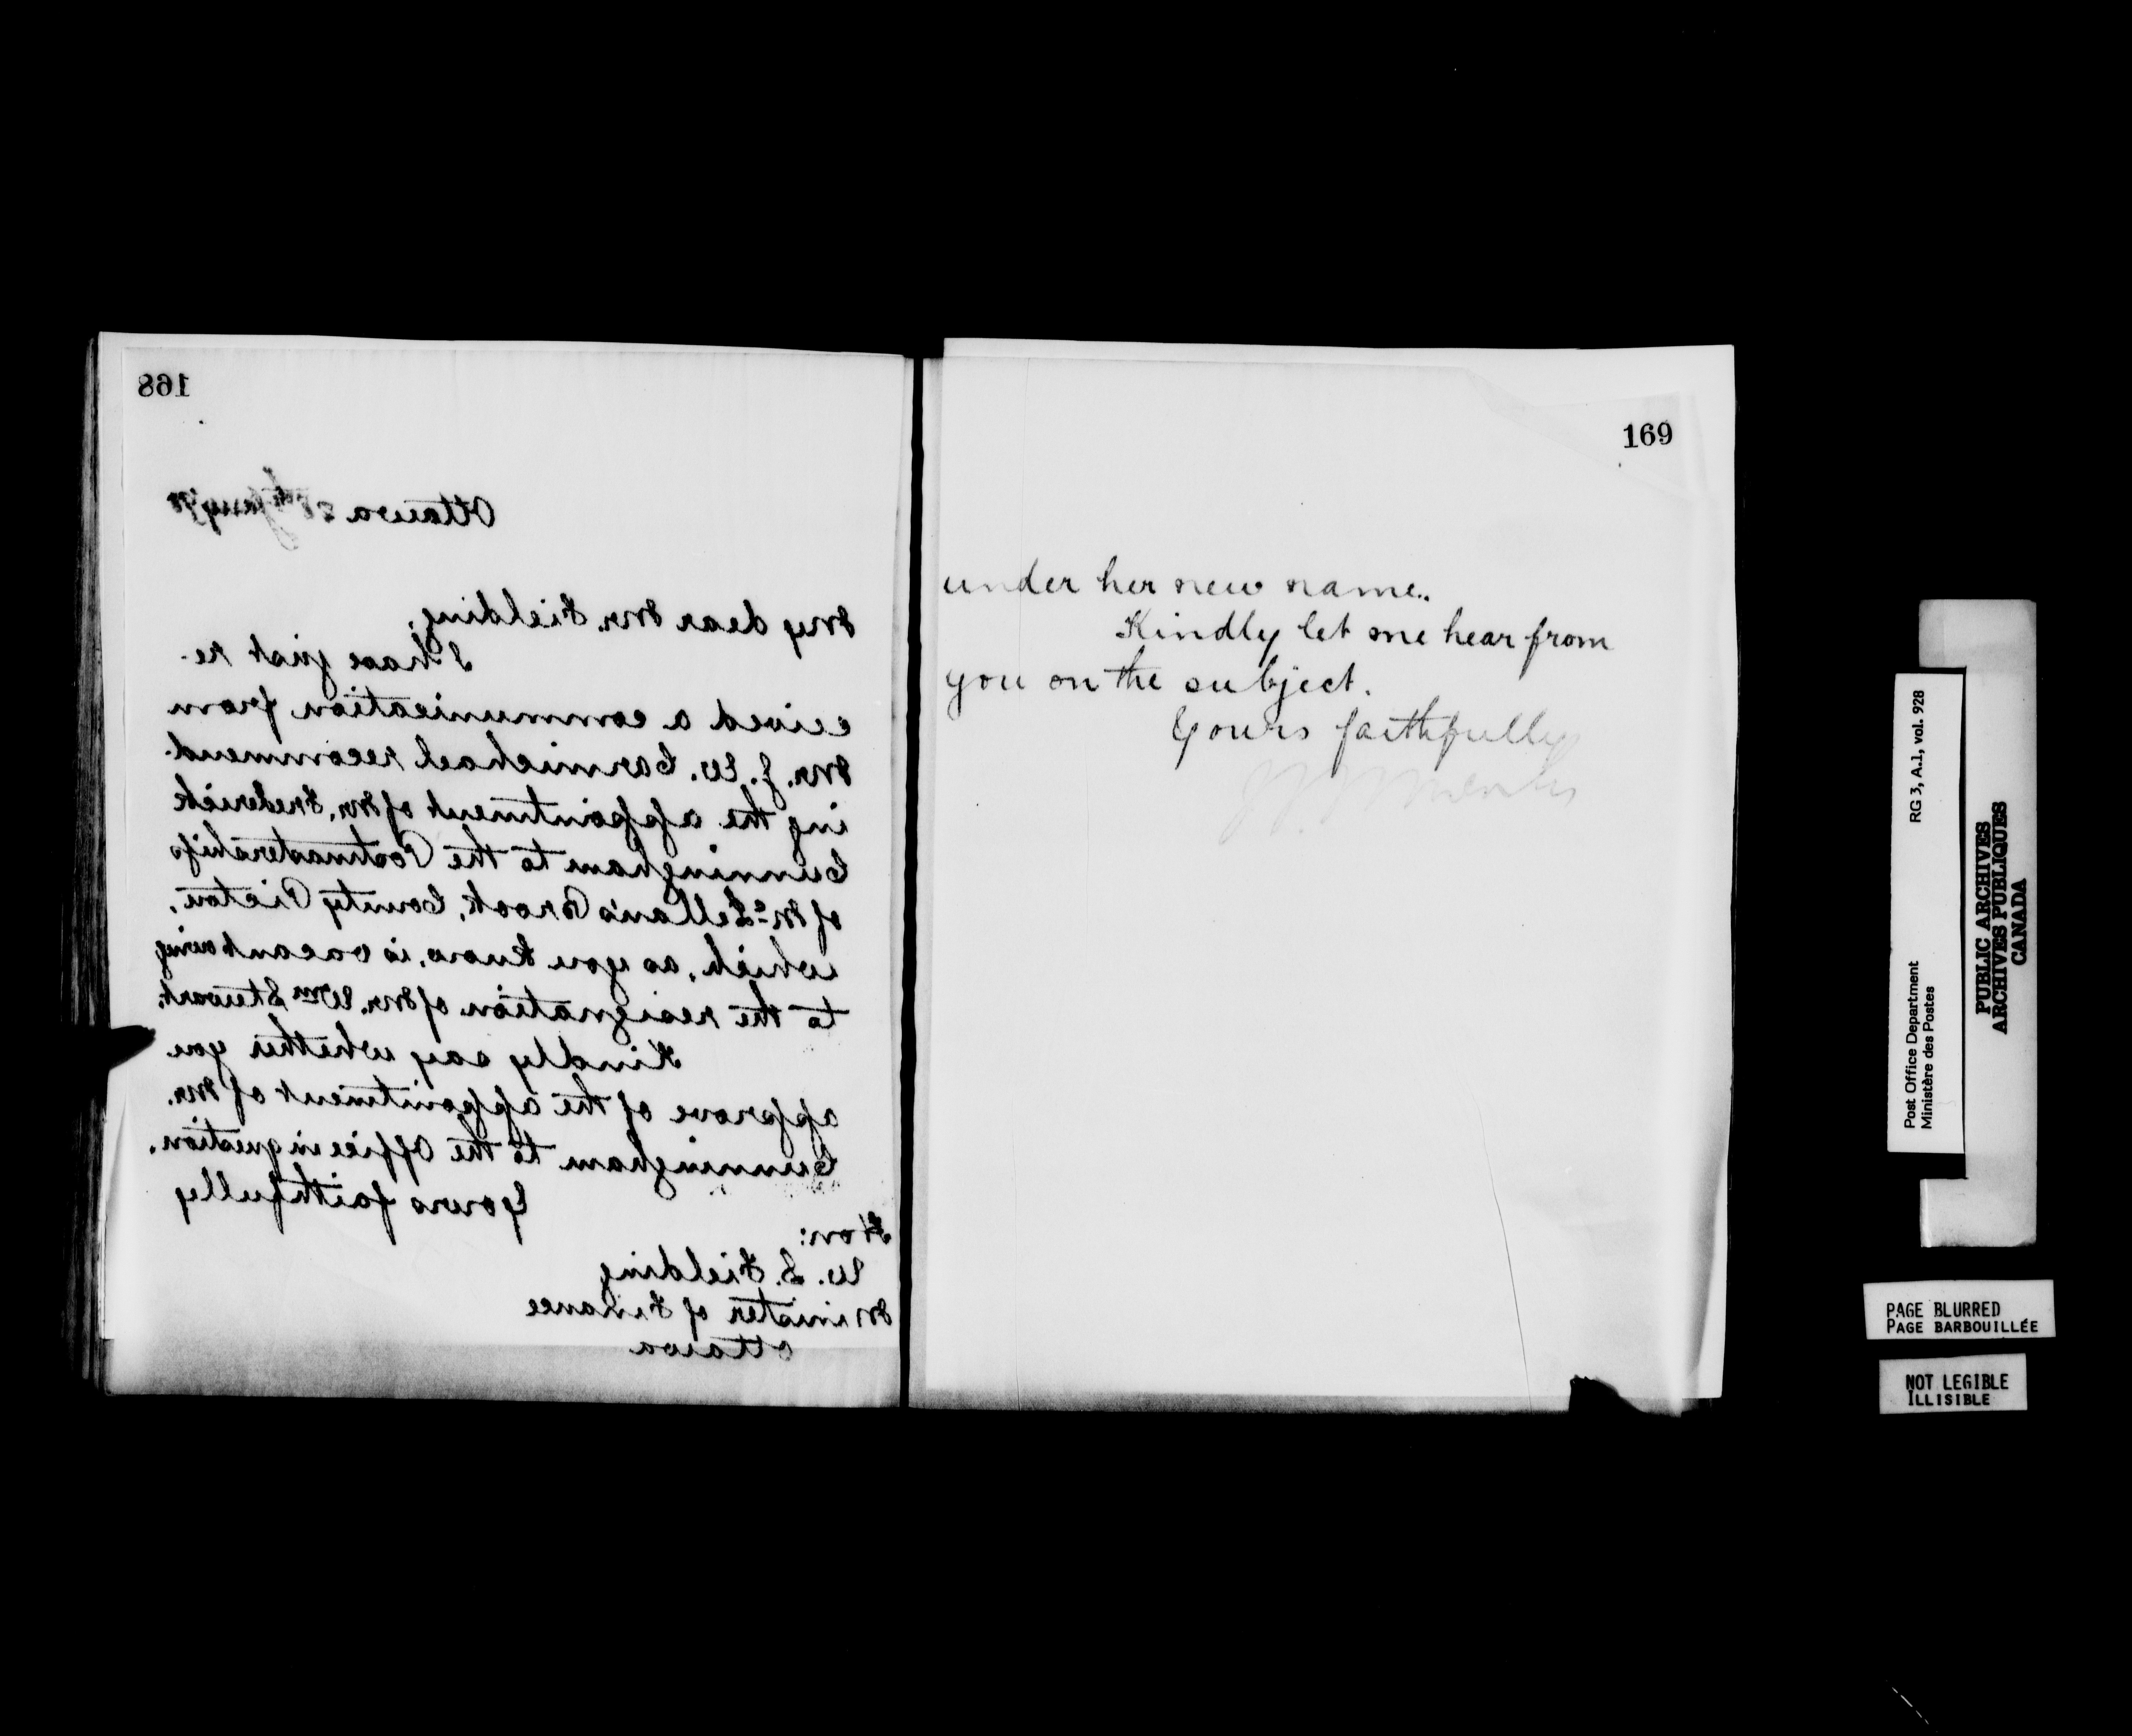 168
Ottawa 28th Jany 98
My dear Mr. Fielding,
I have just re-
ceived a communication from
Mr. J. W. Carmichael recommend-
ing the appointment of Mr. Frederick
Cunningham to the Postmastership
of McLellan's Brook, County Pictou,
which, as you know, is vacant owing
to the resignation of Mr. Wm Stewart.
Kindly say whether you
approve of the appointment of Mr.
Cunningham to the Office in question.
Yours faithfully
Hon:
W. S. Fielding
Minister of Finance
Ottawa
169
under her new name.
Kindly let me hear from
you on the subject.
Yours faithfully
Post Office Department
Ministère des Postes
RG 3, A.1, vol. 928
PUBLIC ARCHIVES
ARCHIVES PUBLIQUES
CANADA
PAGE BLURRED
PAGE BARBOUILLÉE
NOT LEGIBLE
ILLISIBLE